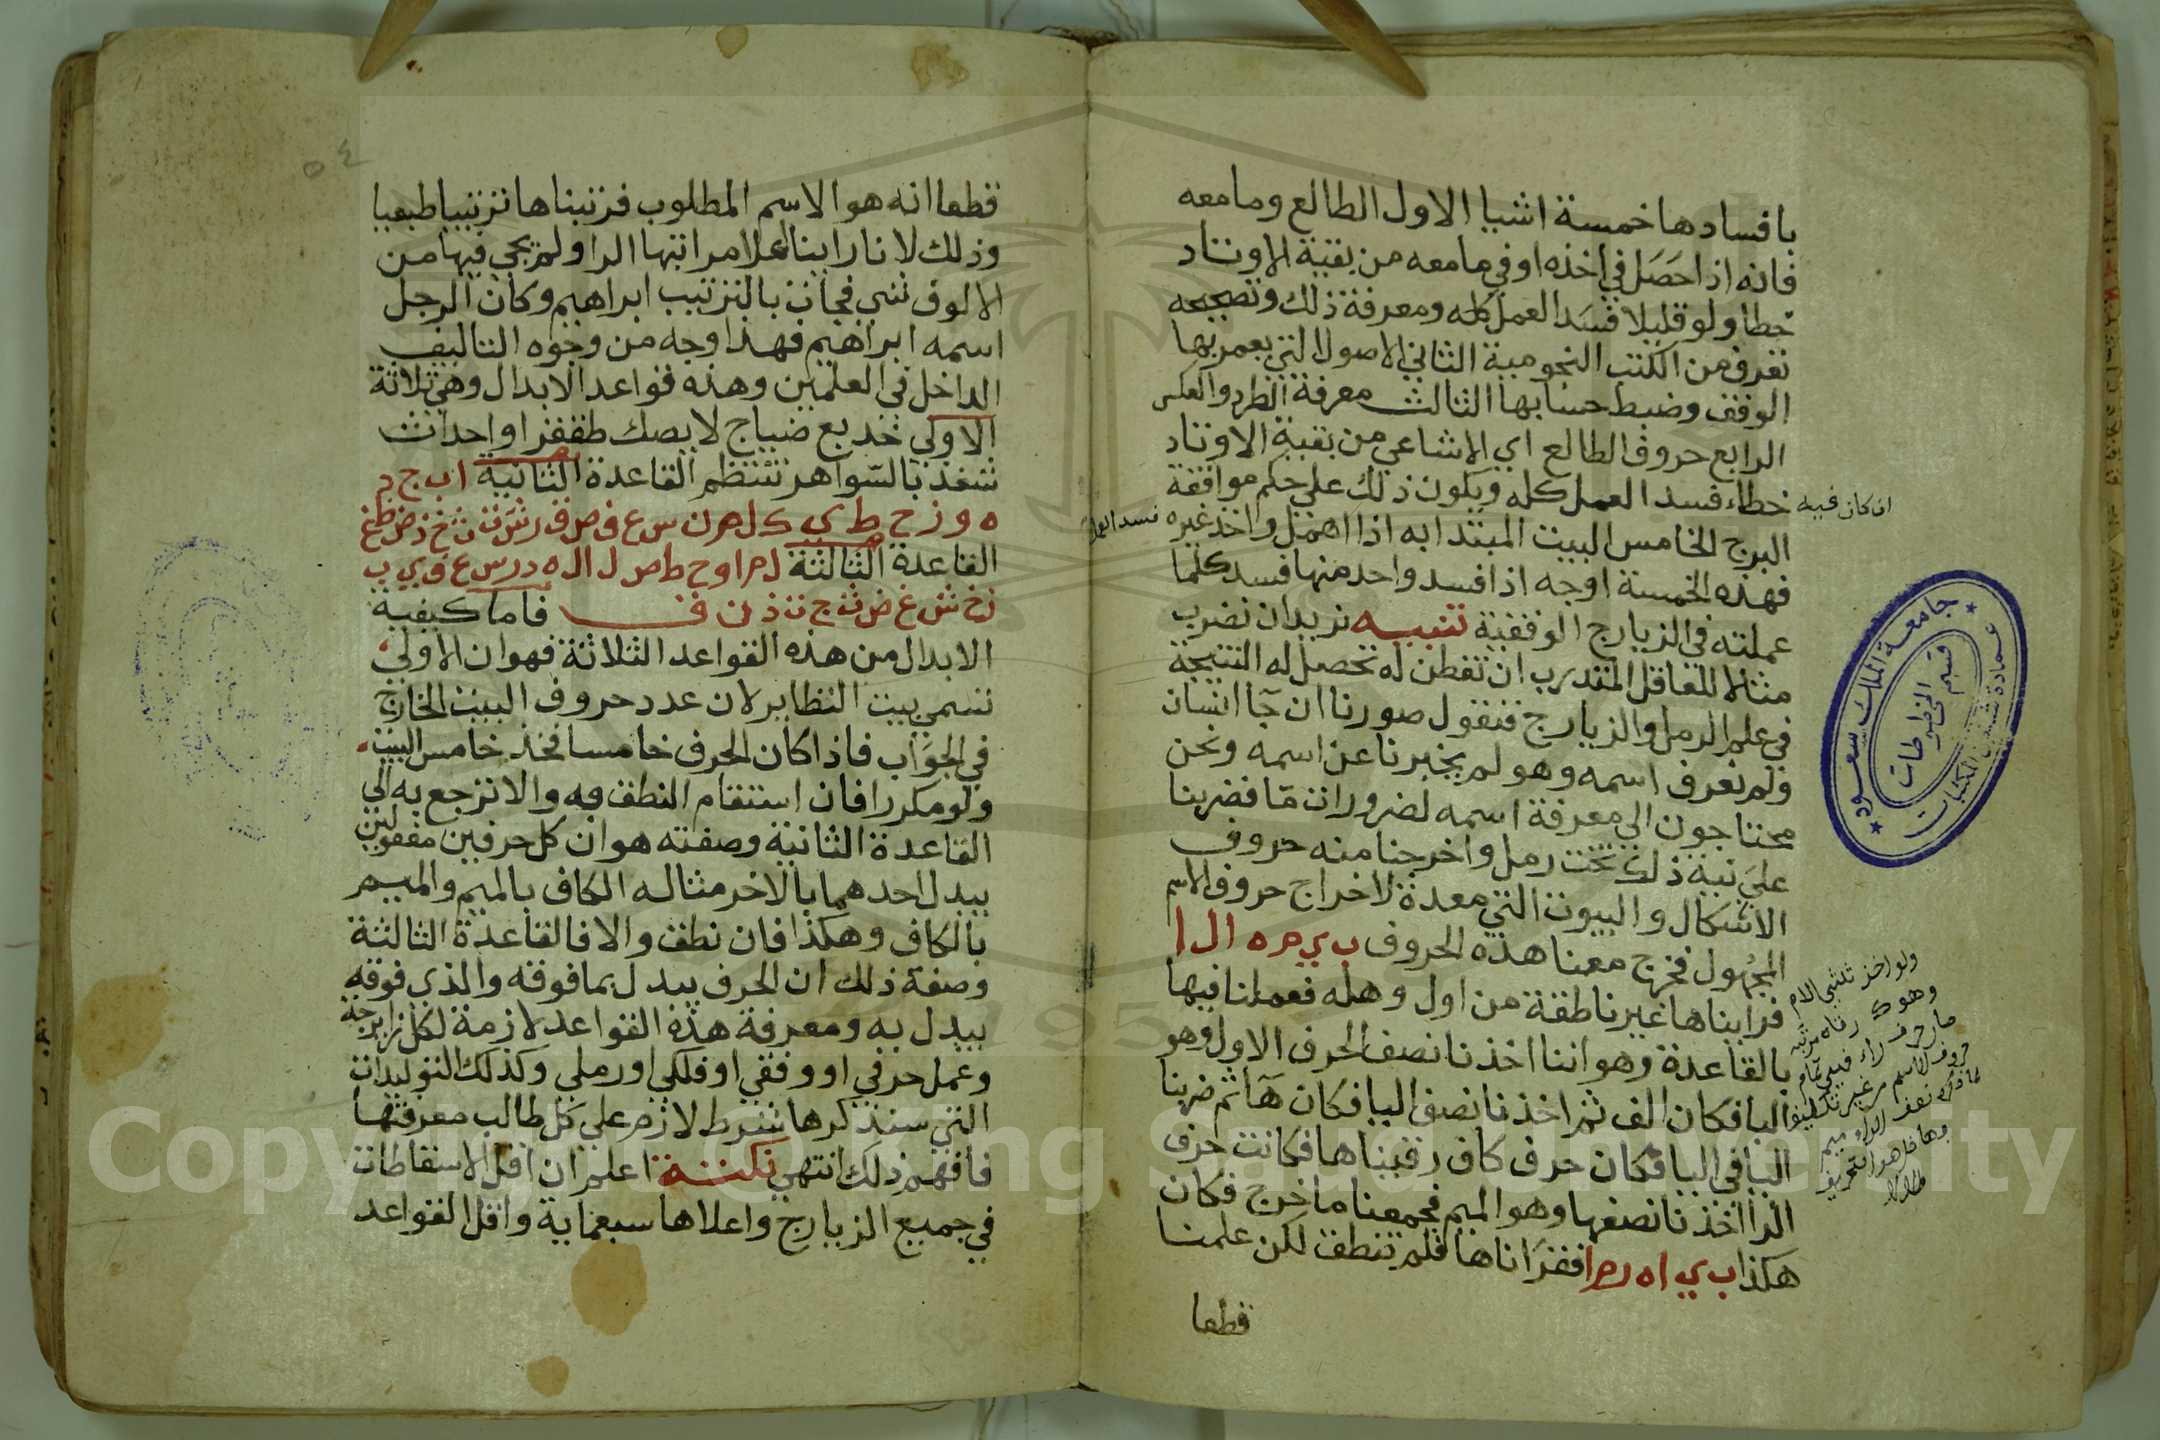 بافسادها خمسة اشيا الاول الطالع ومامعه
فانه اذا حَصَل في اخذه او في مامعه من بقية الاوتاد
خطا ولو قليلا فسَد العمل كله ومعرفة ذلك وتصحيحه
تعرف من الكتب النجومية الثاني الاصول التي يعمر بها
الوفق وضبط حسابها الثالث معرفة الطرد والعكس
الرابع حروف الطالع اي الاشاعي من بقية الاوتاد
ان كان فيه خطاء فسد العمل كله ويكون ذلك علي حكم موافقة
البرج الخامس البيت المبتدا به اذا اهمل واخذ غيره فسد العمل
فهذه الخمسة اوجه اذا فسد واحد منها فسد كلما
عملته في الزيارج الوفقية تنبيه نريد ان نضرب
مثالا للعاقل المتدرب ان تفطن له تحصل له النتيجة
في علم الرمل والزيارج فنقول صورنا ان جَا انسان
ولم نعرف اسمه وهو لم يخبرنا عن اسمه ونحن
محتاجون الي معرفة اسمه لضرورات مّا فضربنا
علىَ نية ذلك تخت رمل واخرجنا منه حروف
الاشكال والبيوت التي معدة لاخراج حروف الاسم
المجهول فخرج معنا هذه الحروف ب ي م ر ه ا ل ا
فرايناها غير ناطقة من اول وهله فعملنا فيها
بالقاعدة وهو اننا اخذنا نصف الحرف الاول وهو
البا فكان الف ثم اخذنا نصف اليا فكان هَا ثم ضربنا
البا في اليا فكان حرف كاف رقيناها فكانت حرف
الرا اخذنا نصفها وهو الميم فجمعنا ما خرج فكان
هكذا ب ي ا ه ر م ا فقرَاناها فلم تنطق لكن علمنا
قطعا
ولو اخذ ثلثي الام
وهو ك
حروف الاسم من غير تكليف
جامعة الملك سعود
عمادة شئون المكتبات
قسم المخطوطات
٥٤
قطعا انه هو الاسم المطلوب فرتبناها ترتيبا طبعيا
وذلك لانا راينا اعلا مراتبها الرا ولم يجي فيها من
الالوف شي فجات بالترتيب ابراهيم وكان الرجل
اسمه ابراهيم فهذا وجه من وجوه التاليف
الداخل في العلمين وهذه قواعد الابدال وهي ثلاثة
الاوكي خد بع ضياج لا يصك طففر او احداث
شغذ بالسّواهر تنتظم القاعدة الثانية ا ب ج د
ه و ز ح ط ي ك ل م ن س ع ف ص ق ر ش ت ث خ ذ ض ظ غ
القاعدة الثالثة
فاما كيفية
الابدال من هذه القواعد الثلاثة فهو ان الاولي
تسمي بيت النظاير لان عدد حروف البيت الخارج
في الجوَاب فاذا كان الحرف خامسا فخذ خامس البيت
ولو مكررا فان استقام النطق فيه والا ترجع به الي
القاعدة الثانية وصفته هو ان كل حرفين مقفولين
يبدل احدهما بالاخر مثاله الكاف بالميم والميم
بالكاف وهكذا فان نطق والا فالقاعدة الثالثة
وصفة ذلك ان الحرف يبدل بما فوقه والذي فوقه
يبدل به ومعرفة هذه القواعد لازمة لكل زايرجة
وعمل حرفي او وفقي او فلكي او رملي وكذلك التوليدات
التي سنذكرها شرط لازم علي كل طالب معرفتها
فافهم ذلك انتهي نكتة اعلم ان اقل الاسقاطات
في جميع الزيارج واعلاها سبعماية واقل القواعد
Copyright © King Saud University